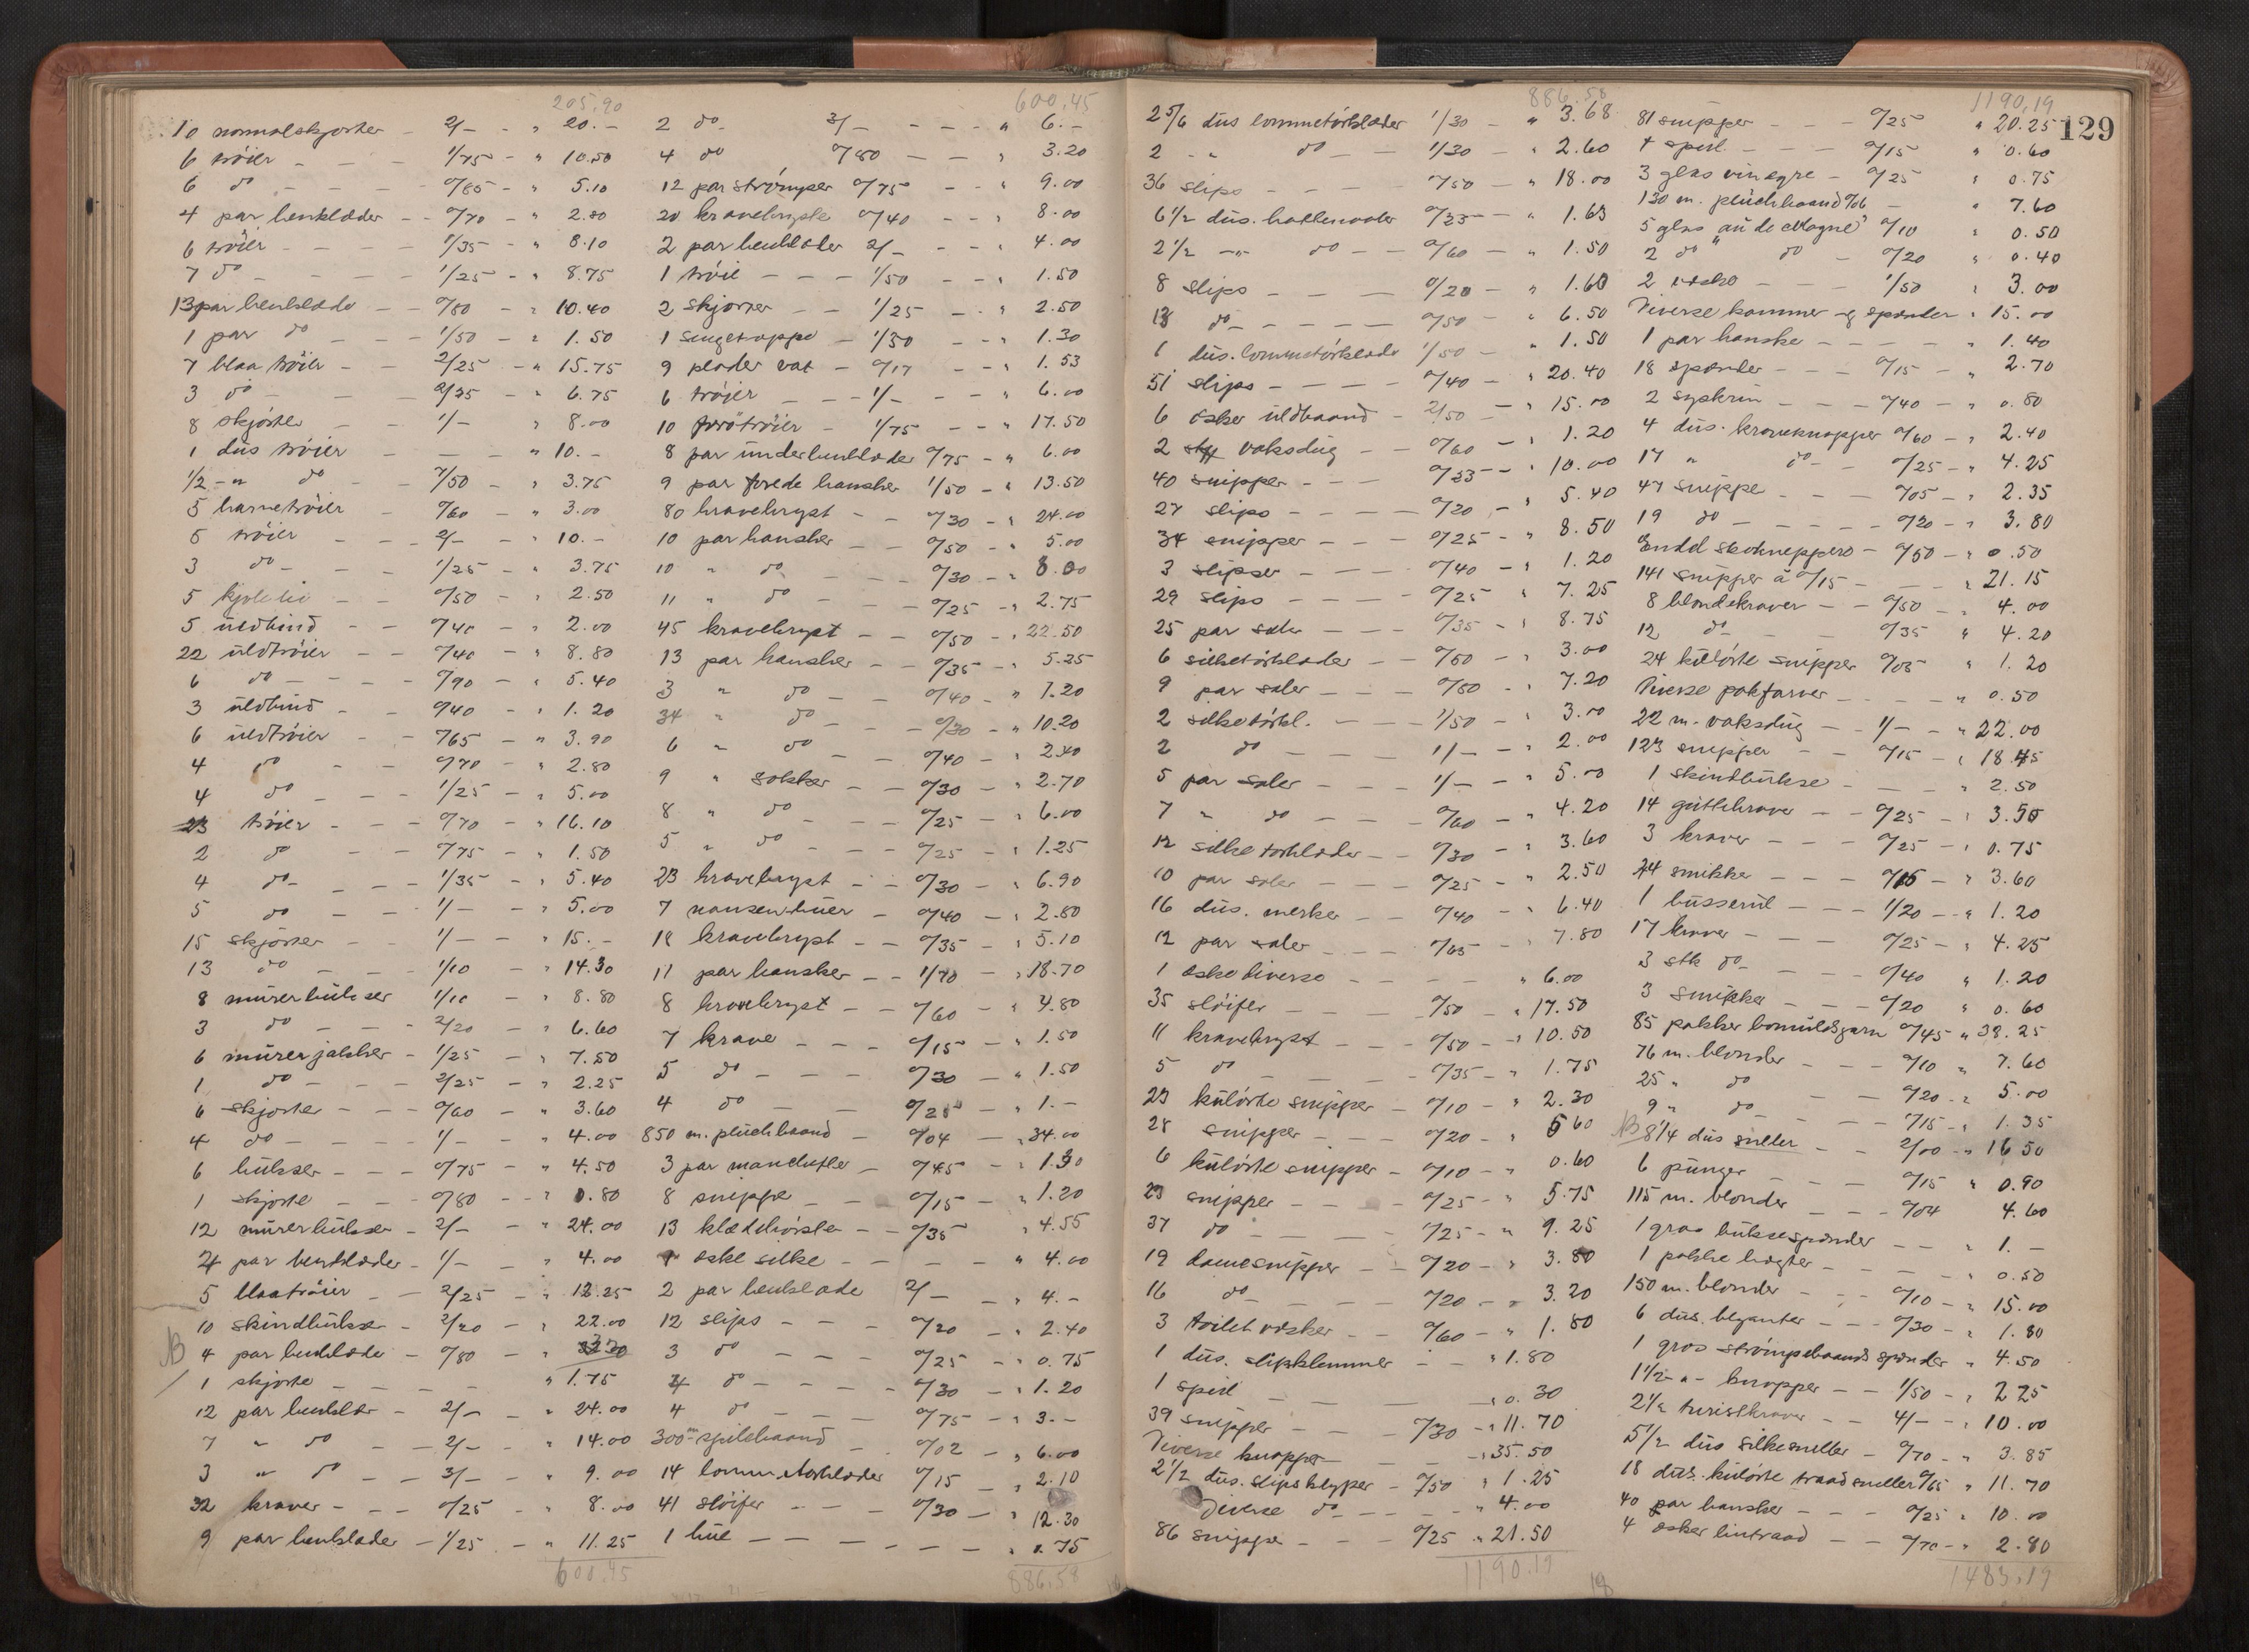 205,90
10 normalskjorter - 2/- - " 20.-
6 tröier - - - 1/75 - " 10.50
6 do - - - - 0/85 - " 5.10
4 par benklæder - - 0/70 - " 2.80
6 tröier - - - - 1/35 - " 8.10
7 do - - - - 1/25 - " 8.75
13 par benklæde - - 0/80 - " 10.40
1 par do - - - 1/50 - " 1.50
7 blaa tröier - - 2/25 - " 15.75
3 do - - - 2/25 - " 6.75
8 skjorter - - 1/- " 8.00
1 düs tröier - - - " 10.-
1/2 - " do - - 7/50 - " 3.75
5 barnetröier - 0/60 - " 3.00
5 tröier - - - 2/- - " 10.-
3 do - - - 1/25 - " 3.75
5 kjoleliv - - 0/50 - " 2.50
5 üldlind - - 0/40 - " 2.00
22 üldtröier - - 0/40 - " 8.80
6 do - - - 0/90 - " 5.40
3 üldlind - - 0/40 - " 1.20
6 üldtröier - - 0/65 - " 3.90
4 do - - 0/70 - " 2.80
4 do - - - 1/25 - " 5.00
23 tröier - - - 0/70 - " 16.10
2 do - - 0/75 - " 1.50
4 do - - - 1/35 - " 5.40
5 do - - - 1/- - " 5.00
15 skjorter - - 1/- - " 15.-
13 do - - - 1/10 - " 14.30
8 mürerbükser 1/10 - " 8.80
3 do - - - 2/20 - " 6.60
6 mürerjakker - 1/25 - " 7.50
1 do - - - 2/25 - " 2.25
6 skjorter - - - 0/60 - " 3.60
4 do - - - - 1/- - " 4.00
6 bükser - - - 0/75 - " 4.50
1 skjorte - - - 0/80 - - " 0.80
12 mürerbükser - 2/- - " 24.00
4 par benklæder - 1/- - " 4.00
5 blaatröier - - 2/25 - " 12.25
10 skindbükser - 2/20 - " 22.00
NB 4 par benklæde - 0/80 - "
1 skjorte - - - - " 1.75
12 par benklæ - 2/- - " 24.00
7 " do - - 2/- - " 14.00
3 " do - - 3/- - " 9.00
32 kraver - - - 0/25 - " 8.00
9 par benklæder - 1/25 - - " 11.25
600,45
600,45
2 do - 3/- - - - " 6.-
4 do 0/80 - - " 3.20
12 par strömper 0/75 - - " 9.00
20 kravebryste 0/40 - - " 8.00
2 par benklæder 2/- - - " 4.00
1 tröie - - - 1/50 - - " 1.50
2 skjorter - - 1/25 - - " 2.50
1 sengetæppe - 1/30 - - " 1.30
9 plader vat - 0/17 - - " 1.53
6 tröjer - - - 1/- - - " 6.00
10 tröier - 1/75 - - " 17.50
8 par ünderbenklæder 0/75 - " 6.00
9 par forede hansker 1/50 - " 13.50
80 kravebryst - - 0/30 - " 24.00
10 par hansker - - 0/50 - " 5.00
10 " do - - - 0/30 - " 3.00
11 " do - - - 0/25 - " 2.75
45 kravebryst - - 0/50 - " 22.50
13 par hansker - - 0/35 - " 5.25
3 " do - - 0/40 - " 1.20
34 " do - - - 0/30 - " 10.20
6 " do - - 0/40 - " 2.40
9 " sokker - - 0/30 - " 2.70
8 " do - - - 0/25 - " 6.00
5 " do - - - 0/25 - " 1.25
23 kravebryst - - 0/30 - " 6.90
7 nansenhüer - 0/40 - " 2.80
18 kravebryst - - 0/35 - " 5.10
11 par hansker - - 1/70 - " 18.70
8 kravebryst - - 0/60 - " 4.80
7 krave - - - 0/15 - " 1.50
5 do - - - 0/30 - " 1.50
4 do - - 0/25 - " 1.-
850 m. plüchbaand - 0/04 - " 34.00
3 par manchetter - 0/45 - " 1.30
8 snippe - - 0/15 - " 1.20
13 klædebörster - - 0/35 " 4.55
1 æske silke - - - " 4.00
2 par benklæde 2/- - " 4.-
12 slips - - - 0/20 - " 2.40
3 do - - - 0/25 - " 0.75
4 do - - - - 0/30 - " 1.20
4 do - - - 0/75 - " 3.-
300 m spilebaand - 0/02 - " 6.00
14 lommetörklæder 0/15 - " 2.10
41 slöifer - - - 0/30 - " 12.30
1 hüe - - - - - - " 0.75
886,58
886.58
2 5/6 düs lommetörklæder 1/30 - " 3.68
2 - " do - - 1/30 - " 2.60
36 slips - - - 0/50 - " 18.00
6 1/2 düs. hattenaaler 0/25 - " 1.63
2 1/2 - " - do - - 0/60 - " 1.50
8 slips - - - 0/20 - " 1.60
13 do - - - - - 0/50 - " 6.50
1 düs. lommetörklæde 1/50 - " 1.50
51 slips - - - - 0/40 - " 20.40
6 æsker üldbaand - 2/50 - " 15.00
2 voksdüg - - 0/60 - " 1.20
40 snipper - - - 0/25 - " 10.00
27 slips - - - - 0/20 - " 5.40
34 snipper - - - 0/25 - " 8.50
3 slipser - - - - 0/40 - " 1.20
29 slips - - - - 0/25 " 7.25
25 par saler - - - 0/35 - " 8.75
6 silketörklæder - - 0/50 - " 3.00
9 par saler - - - 0/80 - " 7.20
2 silketörkl. - - - 1/50 - " 3.00
2 do - - 1/- - " 2.00
5 par saler - - - 1/- - " 5.00
7 " do - - 0/60 - " 4.20
12 silketörklæder - - 0/30 - " 3.60
10 par saler - - - 0/25 - " 2.50
16 düs. merker - - 0/40 - " 6.40
12 par saler - - - 0/65 - " 7.80
1 æske diverse - - - - " 6.00
35 slöifer - - - 0/50 - " 17.50
11 kravebryst - - - 0/50 - " 10.50
5 do - - - - 0/35 - " 1.75
23 külörte snipper - 0/10 - " 2.30
28 snipper - - - 0/20 - " 5 60
6 külörte snipper - 0/10 - " 0.60
23 snipper - - - 0/25 - " 5.75
37 do - - - - 0/25 - " 9.25
19 damesnipper - - 0/20 - " 3.80
16 do - - - 0/20 - " 3.20
3 toiletvæsker - - 0/60 - " 1.80
1 düs. slipsklemmer - - " 1.80
1 speil - - - - " 0.30
39 snipper - - - 0/30 - " 11.70
Diverse knapper - - - " 35.50
2 1/2 düs. slipsklyper - 0/50 " 1.25
Diverse do - - - - " 4.00
86 snippe - - - 0/25 " 21.50
1190.19
1190,19
129
81 snipper - - - 0/25 " 20.25
4 speil - - - 0/15 " 0.60
3 glas vinagre - 0/25 " 0.75
130 m. plüchbaand 0/06 - " 7.60
5 glas " 0/10 " 0.50
2 do do - 0/20 " 0.40
2 æsker - - - 1/50 " 3.00
Diverse kammer og spænder " 15.00
1 par hanske - - - - " 1.40
18 spænder - - - 0/15 - " 2.70
2 syskrin - - - 0/40 - " 0.80
4 düs. kraveknapper 0/60 - " 2.40
17 " do - - 0/25 - " 4.25
47 snippe - - - 0/05 - " 2.35
19 do - - - - 0/20 - " 3.80
- 0/50 - " 0.50
141 snipper á 0/15 - - - " 21.15
8 blondekraver - - 0/50 - " 4.00
12 do - - - 0/35 " 4.20
24 külörte snipper 0/05 " 1.20
Diverse pakfarver - - - " 0.50
22 m. voksdüg - 1/- - " 22.00
123 snipper - - 0/15 - " 18.45
1 skindbükse - - - " 2.50
14 güttekraver - - 0/25 - " 3.50
3 kraver - - - 0/25 - " 0.75
24 snikker - - - 0/15 - " 3.60
1 büsserül - - - 1/20 - - " 1.20
17 kraver - - - 0/25 - " 4.25
3 stk do - - - - 0/40 " 1.20
3 snikker - - - 0/20 " 0.60
85 pakker bomüldsgarn 0/45 " 38.25
76 m. blonder - - 0/10 " 7.60
25 " do - - 0/20 - " 5.00
9 " do - - - 0/15 - " 1.35
NB 8 1/4 düs sneller - - 2/00 - " 16 50
6 pünger - - - 0/15 " 0.90
115 m. blonder - - - 0/04 4.60
1 gros büksespænder - - " 1.-
1 pakke hægter - - - - " 0.50
150 m. blonder - - - 0/10 - " 15.00
6 düs. - - - 0/30 - " 1.80
1 gros strömpebaandsspænder " 4.50
1 1/2 - " - knapper - - 1/50 - " 2 25
2 1/2 türistkraver - - 4/- - " 10.00
5 1/2 düs silkesneller - 0/70 - " 3.85
18 düs. külörte traadsneller 0/65 " 11.70
40 par hansker - - - 0/25 " 10.00
4 æsker lintraad - - 0/70 - " 2.80
1483,19